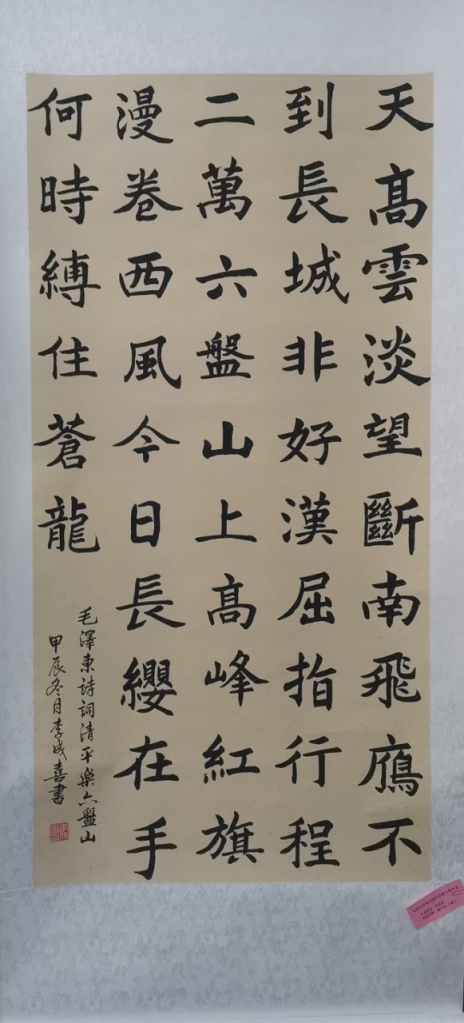 天高雲淡望斷南飛鴈不
到長城非好漢屈指行程
二萬六盤山上高峰紅旗
漫卷西風今日長纓在手
何時縛住蒼龍
毛澤東詩詞清平樂六盤山
甲辰冬月李成喜書